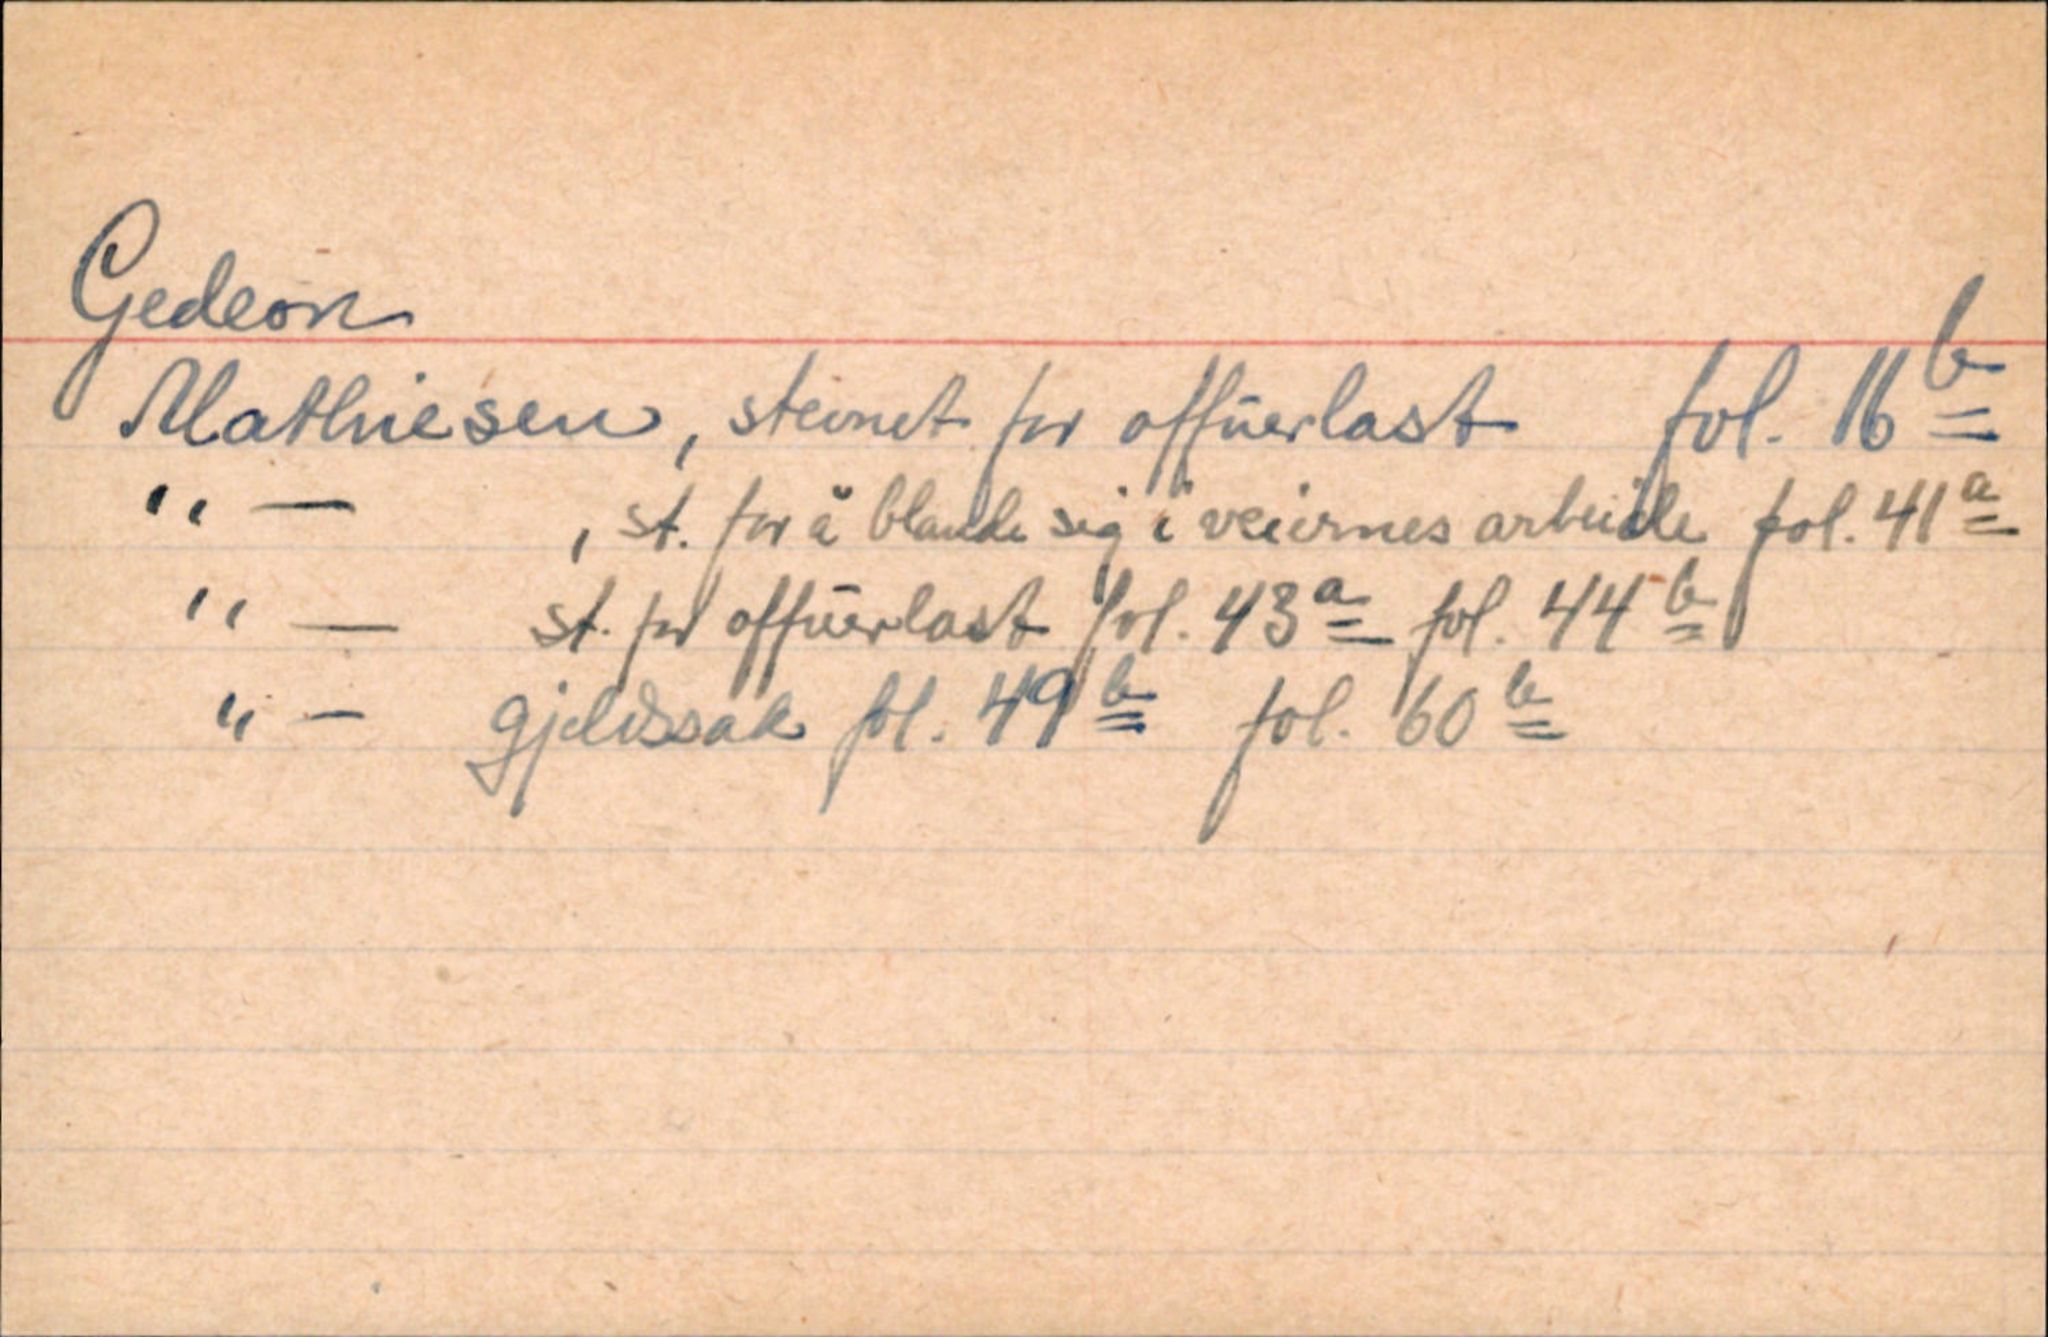 Gedeon
Mathiesen, stevnet for offuerlast fol. 16 b
" — , st. for å blande sig i veiernes arbeide fol. 41 a
" — st. for offuerlast fol. 43 a fol. 44 b
" — gjeldssak fol. 49 b fol. 60 b